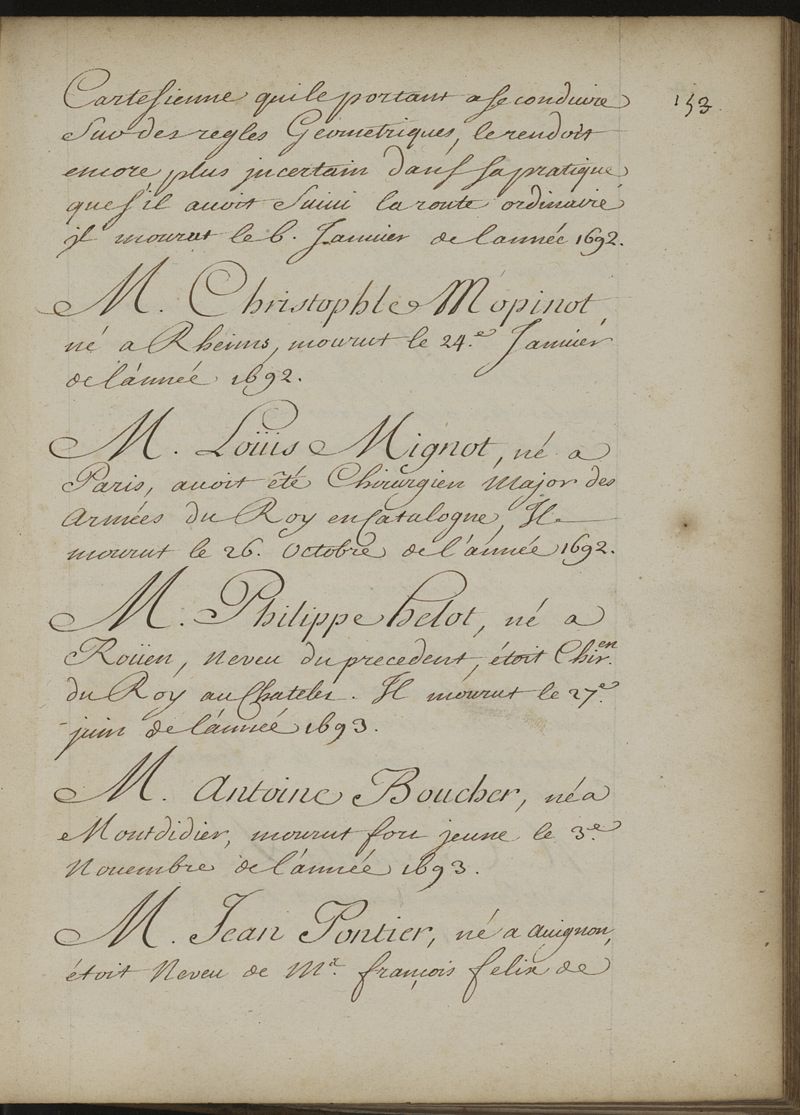 153
Cartesienne qui le portant a se conduire
Sur des regles Geometriques, le rendoit
encore plus jncertain dans sa pratique
que s'il auoit Suiui la route ordinaire
jl mourut le 6. Januier de l'année 1692.
M. Christophle Mopinot
né a Rheims, mourut le 24.e Januier
de l'année 1692.
M. Loüis Mignot, né a
Paris, auoit êté Chirurgien Major des
Armées du Roy en Catalogne, Il
mourut le 26. Octobre de l'année 1692.
M. Philippe helot, né a
Roüen, Neveu du precedent, étoit Chir.en
du Roy au Chatelet. Il mourut le 27.e
juin de l'année 1693.
M. Antoine Boucher, né a
Montdidier, mourut fort jeune le 3.e
Nouembre de l'année 1693.
M. Jean Pontier, né a Auignon,
étoit Neveu de M.r françois felix de